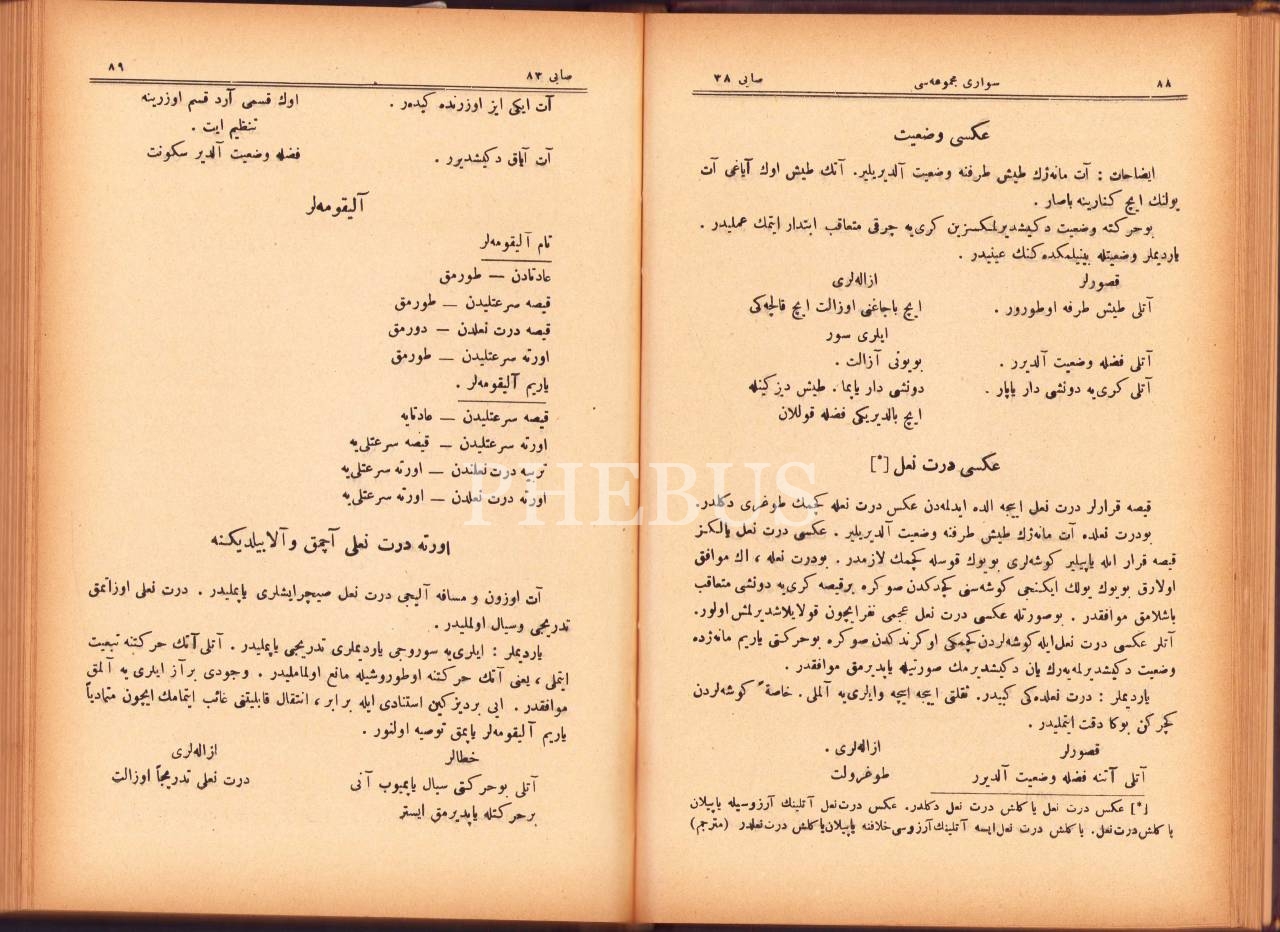 ٨٨
سواری مجموعه‌سی
صایی ٣٨
عکسی وضعیت
ایضاحات : آت مانه‌ژك طیش طرفنه وضعیت آلدیریلیر. آتك طیش اوك آیاغی آت
یولنك ایچ كنارینه باصار .
بوحركته وضعیت دكیشدیرلمكسزین كری‌یه چرقی متعاقب ابتدار ایتمك عملیدر .
یاردیملر وضعیتله بینیلمكده‌كنك عینیدر .
قصورلر
ازاله‌لری
آتلی طیش طرفه اوطورور .
ایچ باجاغنی اوزالت ایچ قالچه‌كی
ایلری سور
آتلی فضله وضعیت آلدیرر .
بویونی آزالت .
آتلی كری‌یه دونشی دار یاپار .
دونشی دار یاپما . طیش دیزكینله
ایچ بالدیریكی فضله قوللان
عكسی درت نعل [*]
قیصه قرارلر درت نعل اییجه الده ایدلمه‌دن عكس درت نعله كچمك طوغری دكلدر.
بودرت نعلده آت مانه‌ژك طیش طرفنه وضعیت آلدیریلیر . عكسی درت نعل یالكز
قیصه قرار ایله یاپیلیر كوشه‌لری بویوك قوسله كچمك لازمدر . بودرت نعله ، اك موافق
اولارق بویوك یولك ایكنجی كوشه‌سنی كچدكدن صوكره برقیصه كری‌یه دونشی متعاقب
باشلامق موافقدر . بوصورتله عكسی درت نعل عجمی نفرایچون قولایلاشدیرلمش اولور.
آتلر عكسی درت نعل‌ایله كوشه‌لردن كچمكی اوكرندكدن صوكره بوحركتی یاریم مانه‌ژده
وضعیت دكیشدیرلمه‌یه‌رك یان دكیشدیرمك صورتیله یاپدیرمق موافقدر .
یاردیملر : درت نعلده‌كی كبیدر. ثقلتی اییجه اییجه وایلری‌یه آلملی . خاصةً كوشه‌لردن
كچركن بوكا دقت ایتملیدر .
قصورلر
ازاله‌لری .
آتلی آتنه فضله وضعیت آلدیرر
طوغرولت
[*] عكس درت نعل یا كلش درت نعل دكلدر. عكس درت‌نعل آتلینك آرزوسیله یاپیلان
یا كلش درت نعل. یا كلش درت نعل‌ایسه آتلینك آرزوسی خلافنه یاپیلان یا كلش درت نعلدر (مترجم)
صایی ٨٣
٨٩
آت ایكی ایز اوزرنده كیدەر .
اوك قسمی آرد قسم اوزرینه
تنظیم ایت .
آت آیاق دكیشدیرر .
فضله وضعیت آلدیر سكونت
آلیقومه‌لر
تام آلیقومه‌لر
عادتادن — طورمق
قیصه سرعتلیدن — طورمق
قیصه درت نعلدن — دورمق
اورته سرعتلیدن — طورمق
یاریم آلیقومه‌لر .
قیصه سرعتلیدن — عادتایه
اورته سرعتلیدن — قیصه سرعتلی‌یه
تربیه درت نعلندن — اورته سرعتلی‌یه
اورته درت نعلدن — اورته سرعتلی‌یه
اورته درت نعلی آچمق و آلابیلدیكنه
آت اوزون و مسافه آلیجی درت نعل صیچرایشلری یاپملیدر . درت نعلی اوزاتمق
تدریجی وسیال اولملیدر .
یاردیملر : ایلری‌یه سوروجی یاردیملری تدریجی یاپملیدر . آتلی آتك حركتنه تبعیت
ایتملی ، یعنی آتك حركتنه اوطوروشیله مانع اولماملیدر . وجودی برآز ایلری یه آلمق
موافقدر . ایی بردیزكین استنادی ایله برابر ، انتقال قابلیتی غائب ایتمامك ایچون متمادیاً
یاریم آلیقومه‌لر یاپمق توصیه اولنور .
خطالر
ازاله‌لری
آتلی بوحركتی سیال یاپمیوب آنی
درت نعلی تدریجاً اوزالت
برحركتله یاپدیرمق ایستر
PHEBUS